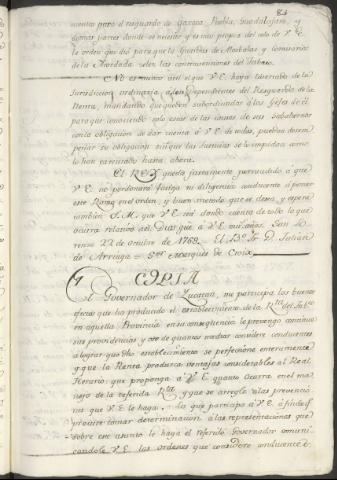 84
cuenta para el resguardo de Oaxaca, Puebla, Guadalajara, y
demas partes donde se necesite y es mui propia del celo de V.E.
la orden que dió para que la Guardas de Alcabalas y Comisarios
de la Acordada celen las contravenciones del Tabaco.
No es menos util el que V.E. haya libertado de la
Jurisdiccion ordinaria a los Dependientes del Resguardo de la
Renta, mandando que queden subordinados a los Gefes de el
para que conociendo solo estos de las causas de sus subalternos
con la obligacion de dar cuenta à V.E. de todas, puedan desem
peñar su obligacion sin que las Justicias se lo impidan como
lo han executado hasta ahora.
El Rey queda justamente persuadido à que
V.E. no perdonará fatiga ni diligencia conducente à poner
este Ramo en el orden, y buen metodo que se desea, y espera
tambien S.M. que V.E. irá dando cuenta de todo lo que
ocurra relativo à el. Dios gue. à V.E. ms. años. San Lo
renzo 22 de octubre de 1768. El Bo. Fr. D. Julian
de Arriaga = Sor. Marques de Croix
COPIA
El Governador de Yucatan, me participa los buenos
efectos que ha producido el establecimiento de la Rta. del Tabco.
en aquella Provincia en su consequencia le prevengo continue
sus providencias y use de quantos medios considere conducentes
a lograr que dho establecimiento se perfeccione enteramente
y que la Renta produzca ventajas considerables al Real
Herario: que proponga à V.E. quanto ocurra en el ma
nejo de la referida Rta. y que se arregle à las prevencio
nes que V.E. le haga. lo que participo à V.E. à fin de q
procure tomar determinacion à las representaciones que
sobre este asunto le haga el referido Governador comuni
candole V.E. las ordenes que considere conducente à